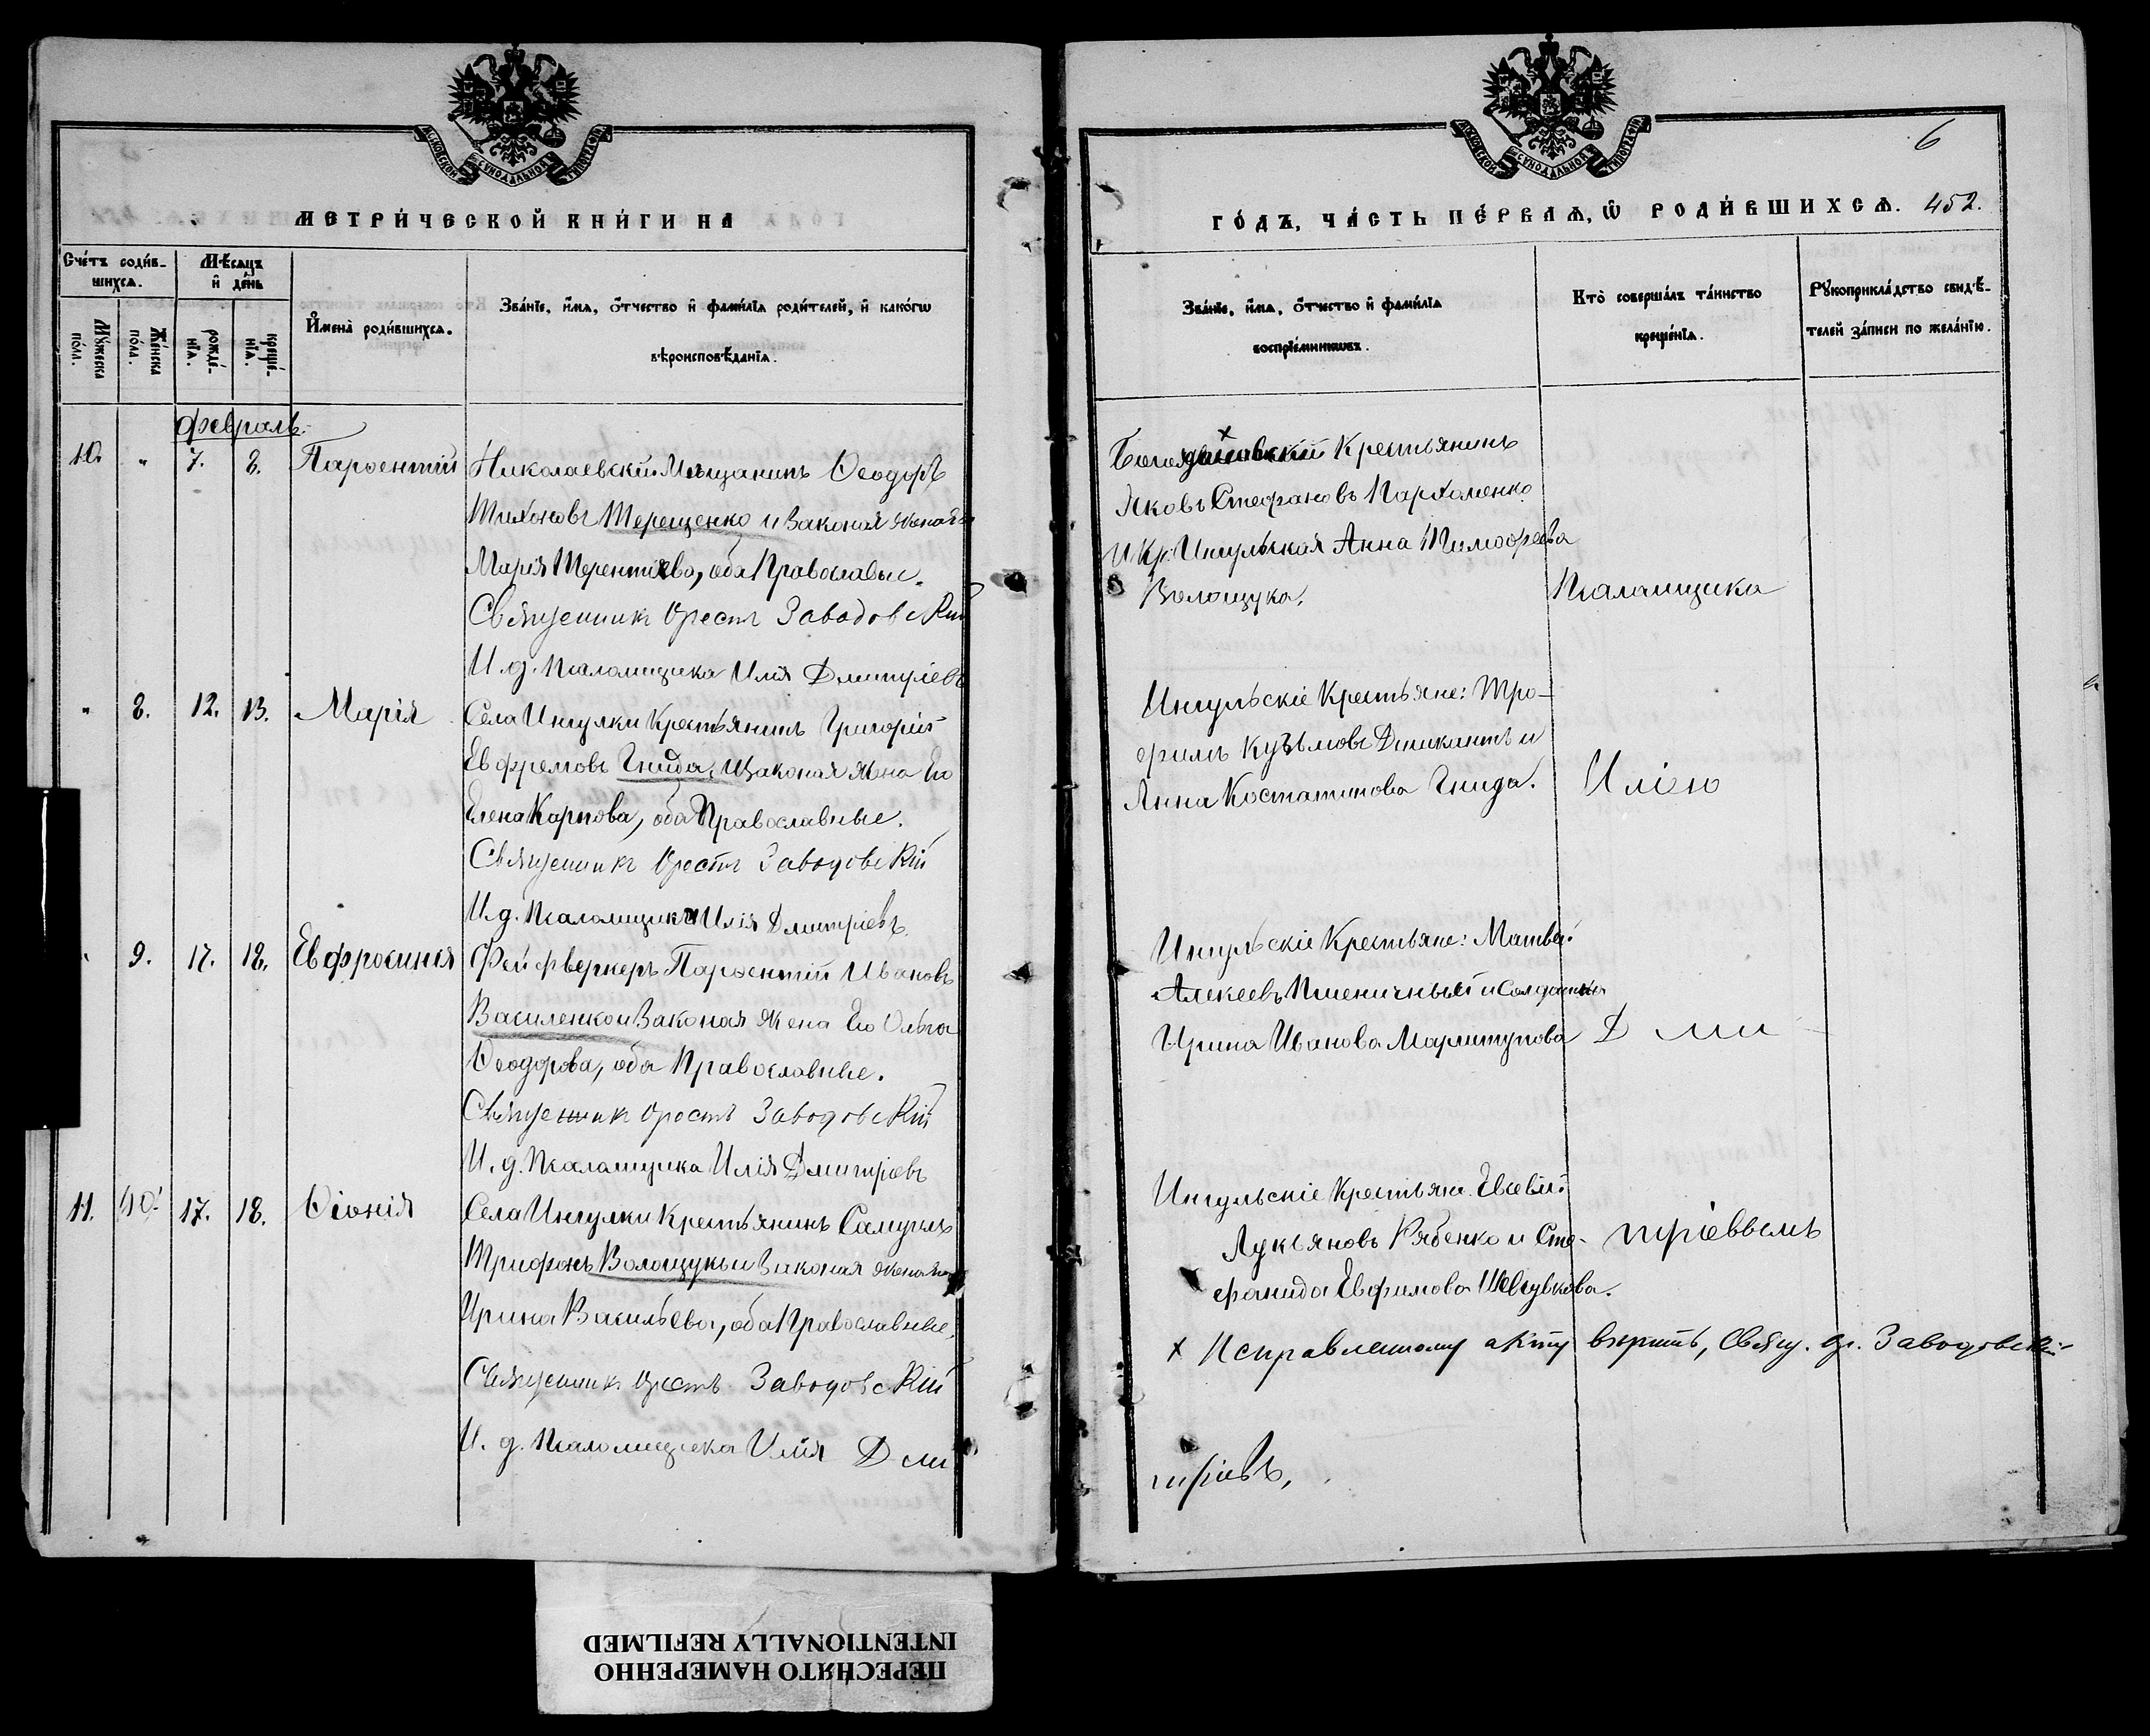 МЕТРИ́ЧЕСКОЙ КНИ́ГИ НА
Сче́тъ роди́в-
шихсѧ.
Мꙋ́жеска по́ла.
Же́нска по́ла.
Мѣ́сѧцъ и҆ де́нь
рожде́-нїѧ.
креще́-нїѧ.
И҆мена̀ роди́вшихсѧ.
Зва́нїе, и҆́мѧ, ѻ҆́тчество и҆ фами́лїѧ роди́телей, и҆ како́гѡ
вѣроисповѣ́данїѧ.
Февраль.
10. " 7. 8. Парѳентій
Николаевскій Мѣщанинъ Ѳеодоръ
Тихоновъ Терещенко и Законая жена его
Марія Терентіева, оба Православые.
Священникъ Орестъ Заводовскій
И. д. Псаломщика Илія Дмитріевъ
" 8. 12. 13. Марія
Села Ингулки Крестьянинъ Григорій
Евфремовъ Гнида, и Законая Жена Его
Елена Карпова, оба Православные.
Священникъ Орестъ Заводовскій
И. д. Псаломщика Илія Дмитріевъ.
" 9. 17. 18. Евфросинія
Фейфверкеръ Парѳентій Ивановъ
Василенко и Законая Жена Его Ольга
Ѳеодорова, оба Православные.
Священникъ Орестъ Заводовскій
И. д. Псаломщика Илія Дмитріевъ
11. 10. 17. 18. Ѳіонія
Села Ингулки Крестьянинъ Самуилъ
Трифонъ Волощукъ и Законая жена его
Ирина Васильева, оба Православные,
Священникъ Орестъ Заводовскій
И. д. Псаломщика Илія Дми
6
ГО́ДЪ, ЧА́СТЬ ПЕ́РВАѦ, Ѡ҆ РОДИ́ВШИХСѦ. 452.
Зва́нїе, и҆́мѧ, ѻ҆́тчество и҆ фами́лїѧ
воспрїе́мникѡвъ.
Кто̀ соверша́лъ та́инство
креще́нїѧ.
Рꙋкоприкла́дство свидѣ́-
телей за́писи по жела́нїю.
Крестьянинъ
Яковъ Стефановъ Пархоменко
и Кр. Ингульская Анна Тимоѳеева
Волощука.
Псаломщика
Ингульскіе Крестьяне: Тро-
фимъ Кузьмовъ Дишкантъ и
Анна Костатинова Гнида.
Иліею
Ингульскіе Крестьяне: Матвей
Алексеевъ Пшеничный и Солдатка
Ирина Иванова Мармитупова
Д ми
Ингульскіе Крестьяне. Евсевій
Лукьяновъ Рябенко и Сте-
фанида Евфимова Шевчукова.
тріевымъ
х Исправленному акту верить, Свящ. Ор. Заводовскій
тріевъ,
ПЕРЕСНЯТО НАМЕРЕННО
INTENTIONALLY REFILMED